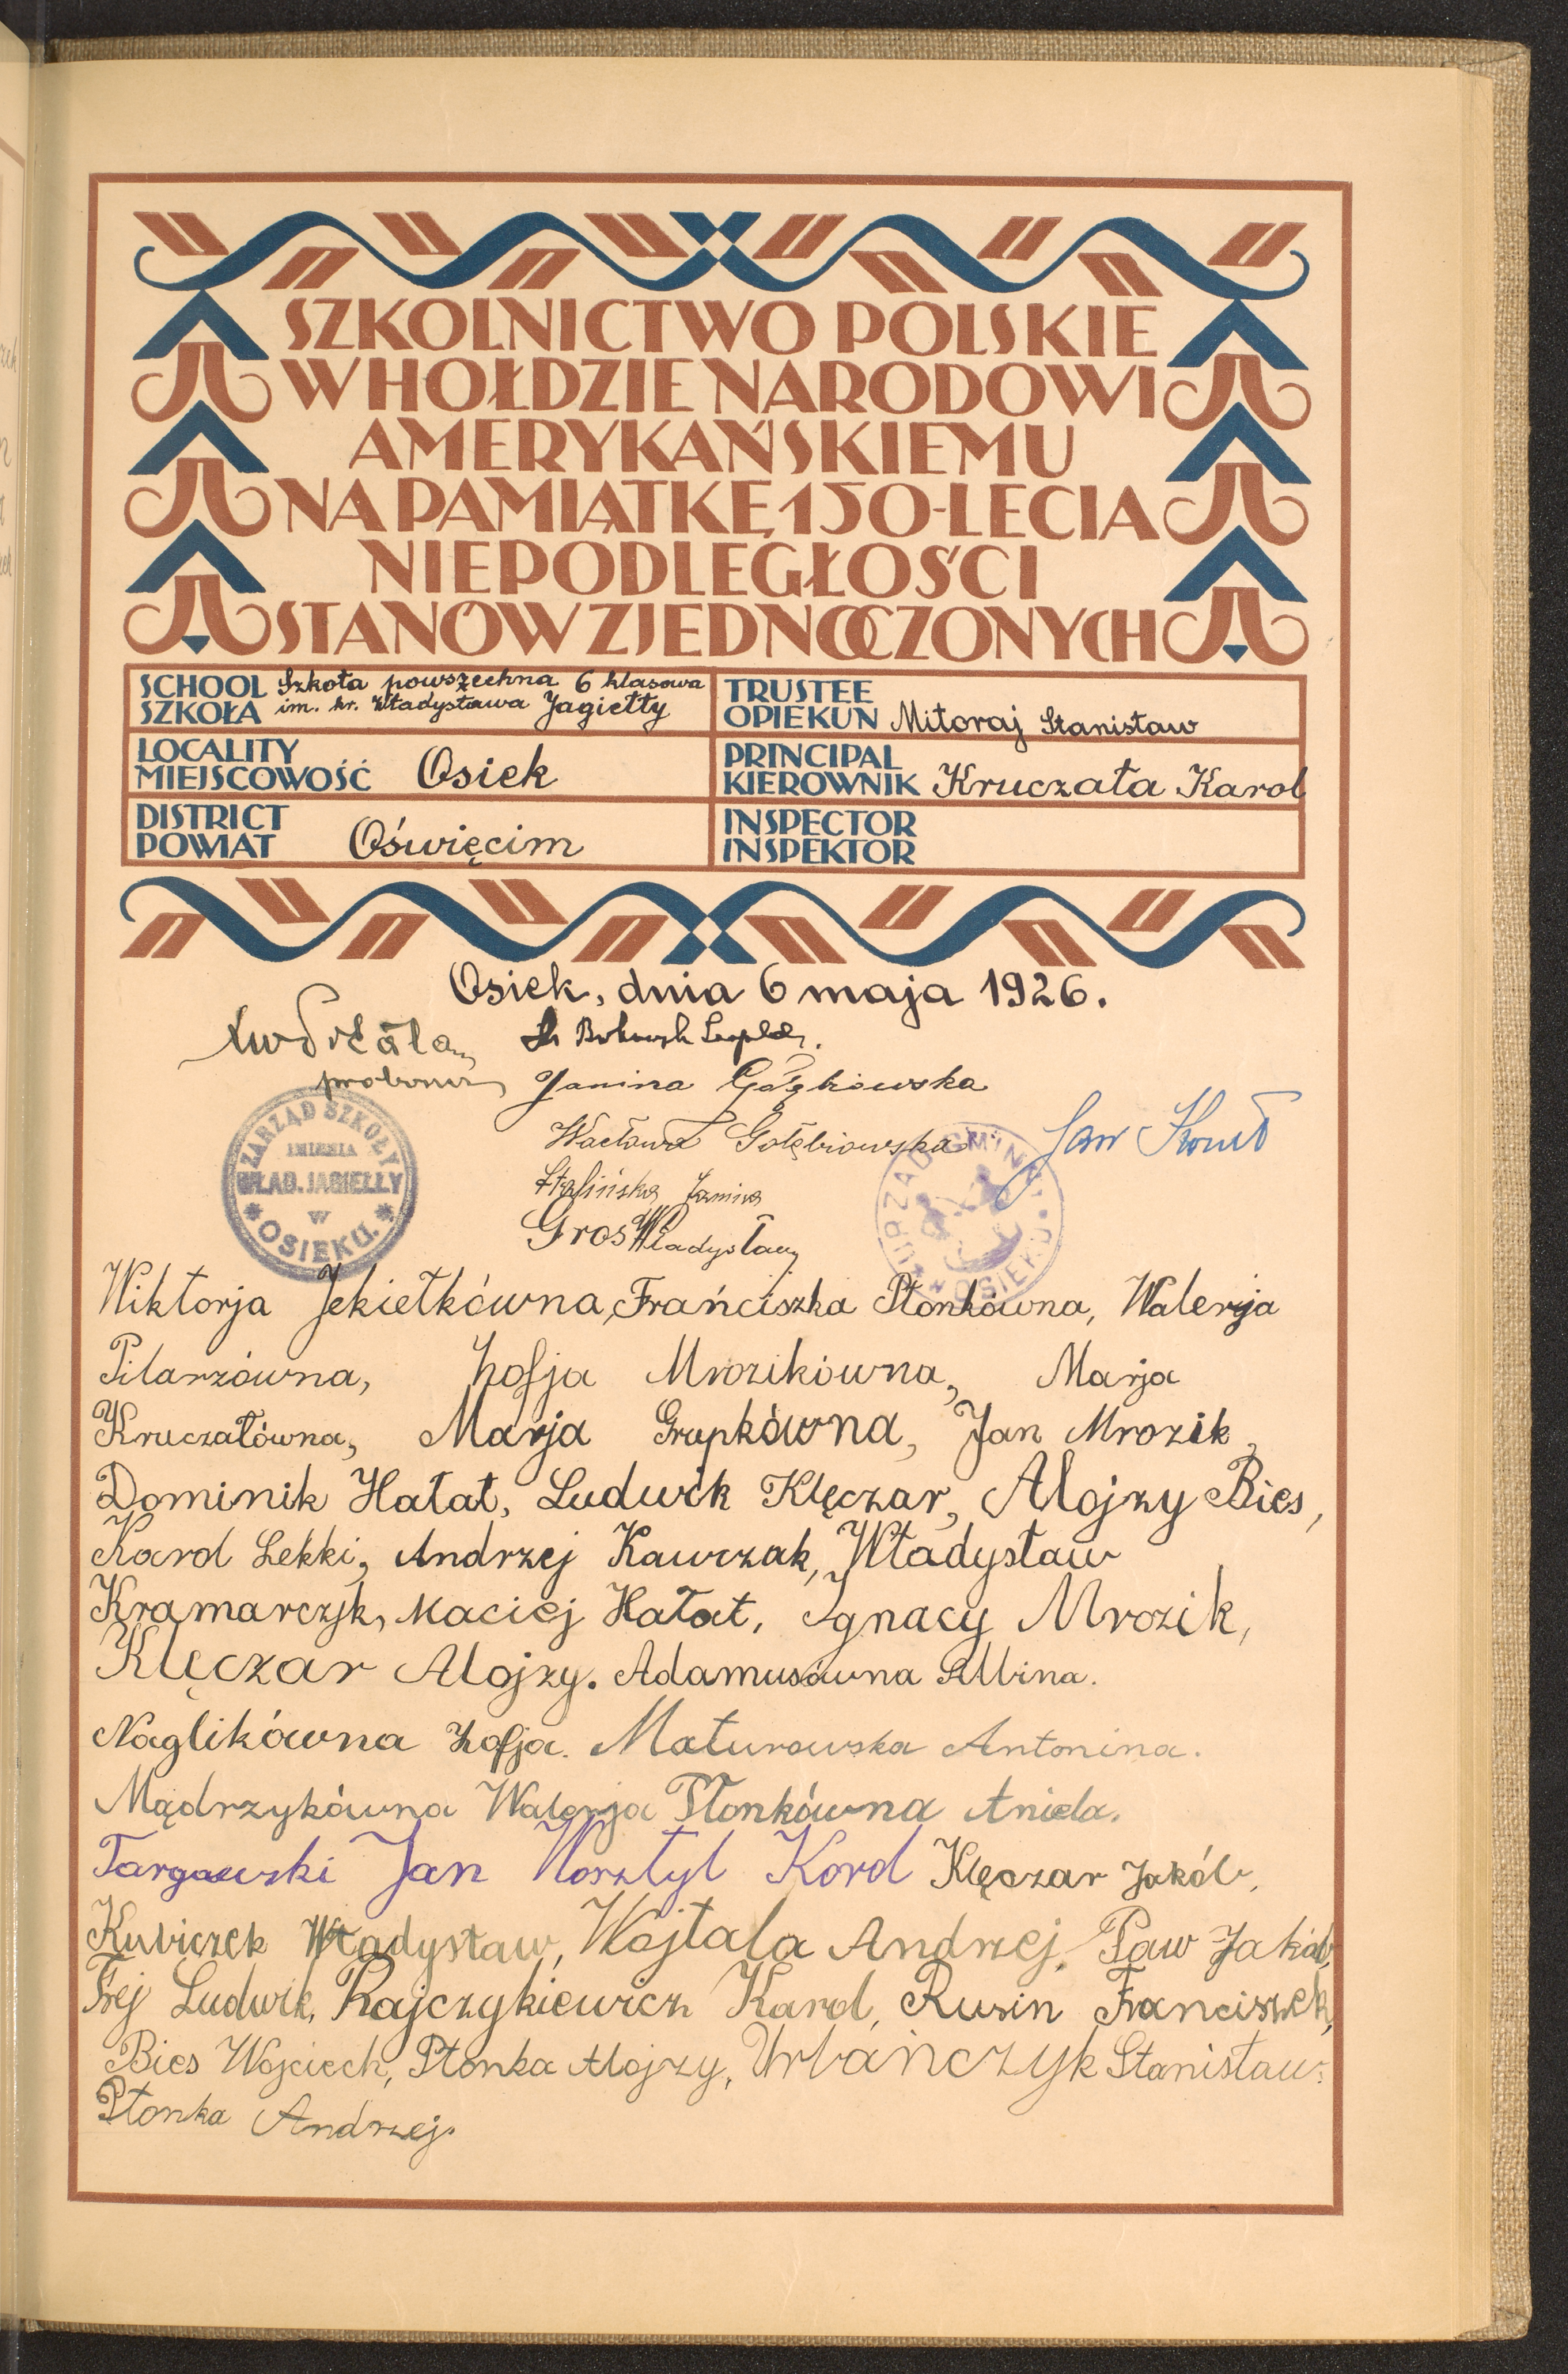 SZKOLNICTWO POLSKIE
W HOŁDZIE NARODOWI
AMERYKAŃSKIEMU
NA PAMIĄTKĘ 150-LECIA
NIEPODLEGŁOŚCI
STANÓW ZJEDNOCZONYCH
SCHOOL
SZKOŁA
Szkoła powszechna 6 klasowa
im. kr. Władysława Jagiełły
TRUSTEE
OPIEKUN Mitoraj Stanisław
LOCALITY
MIEJSCOWOŚĆ Osiek
PRINCIPAL
KIEROWNIK Kruczała Karol
DISTRICT
POWIAT Oświęcim
INSPECTOR
INSPEKTOR
Osiek, dnia 6 maja 1926.
Janina Gołębiowska
Wacława Gołębiowska
Janina
Gros Władysław
Jan
ZARZĄD SZKOŁY
IMIENIA
WŁAD. JAGIEŁŁY
W
OSIEKU.
URZĄD GMINY
OSIEKU
Wiktorja Jekiełkówna, Frańciszka Płonkówna, Walerja
Pilarzówna, Zofja Mrozikówna, Marja
Kruczałówna, Marja Grupkówna, Jan Mrozik,
Dominik Hałat, Ludwik Klęczar, Alojzy Bies,
Karol Lekki, Andrzej Kawczak, Władysław
Kramarczyk, Maciej Hałat, Ignacy Mrozik,
Klęczar Alojzy. Adamusówna Albina.
Naglikówna Zofja. Maturowska Antonina.
Mądrzykówna Walerja Płonkówna Aniela.
Targowski Jan Worsztyl Karol Klęczar Jakób,
Kubiczek Władysław, Wojtala Andrzej, Paw Jakób,
Frej Ludwik, Rajczykiewicz Karol, Rusin Franciszek,
Bies Wojciech, Płonka Alojzy, Urbańczyk Stanisław.
Płonka Andrzej.